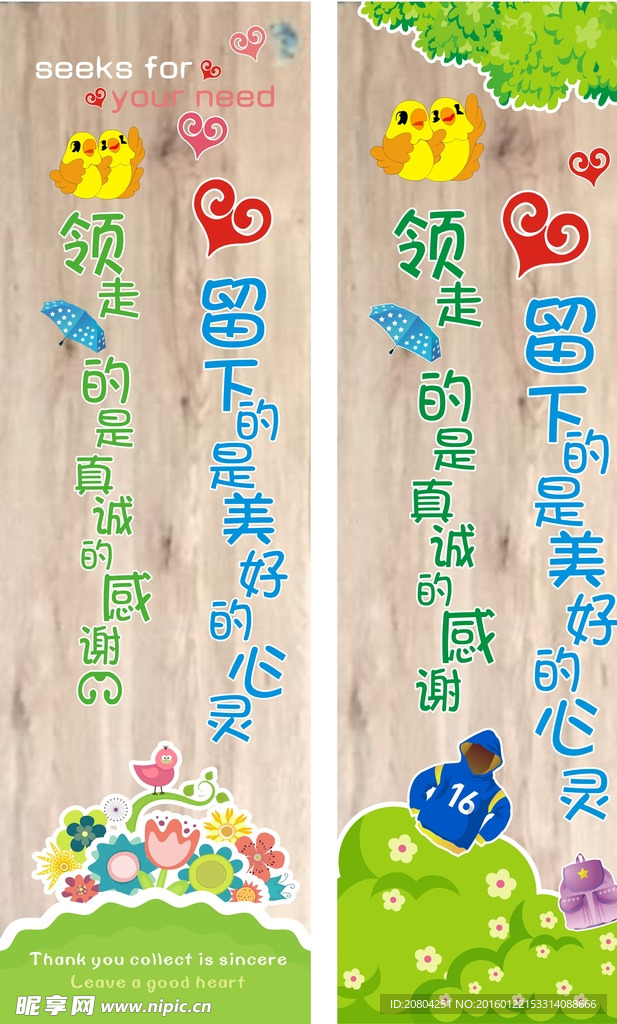 seeks for
your need
领走的是真诚的感谢
留下的是美好的心灵
Thank you collect is sincere
Leave a good heart
昵享网 www.nipic.cn
领走的是真诚的感谢
留下的是美好的心灵
16
ID:20804251 NO:20160122153314088666